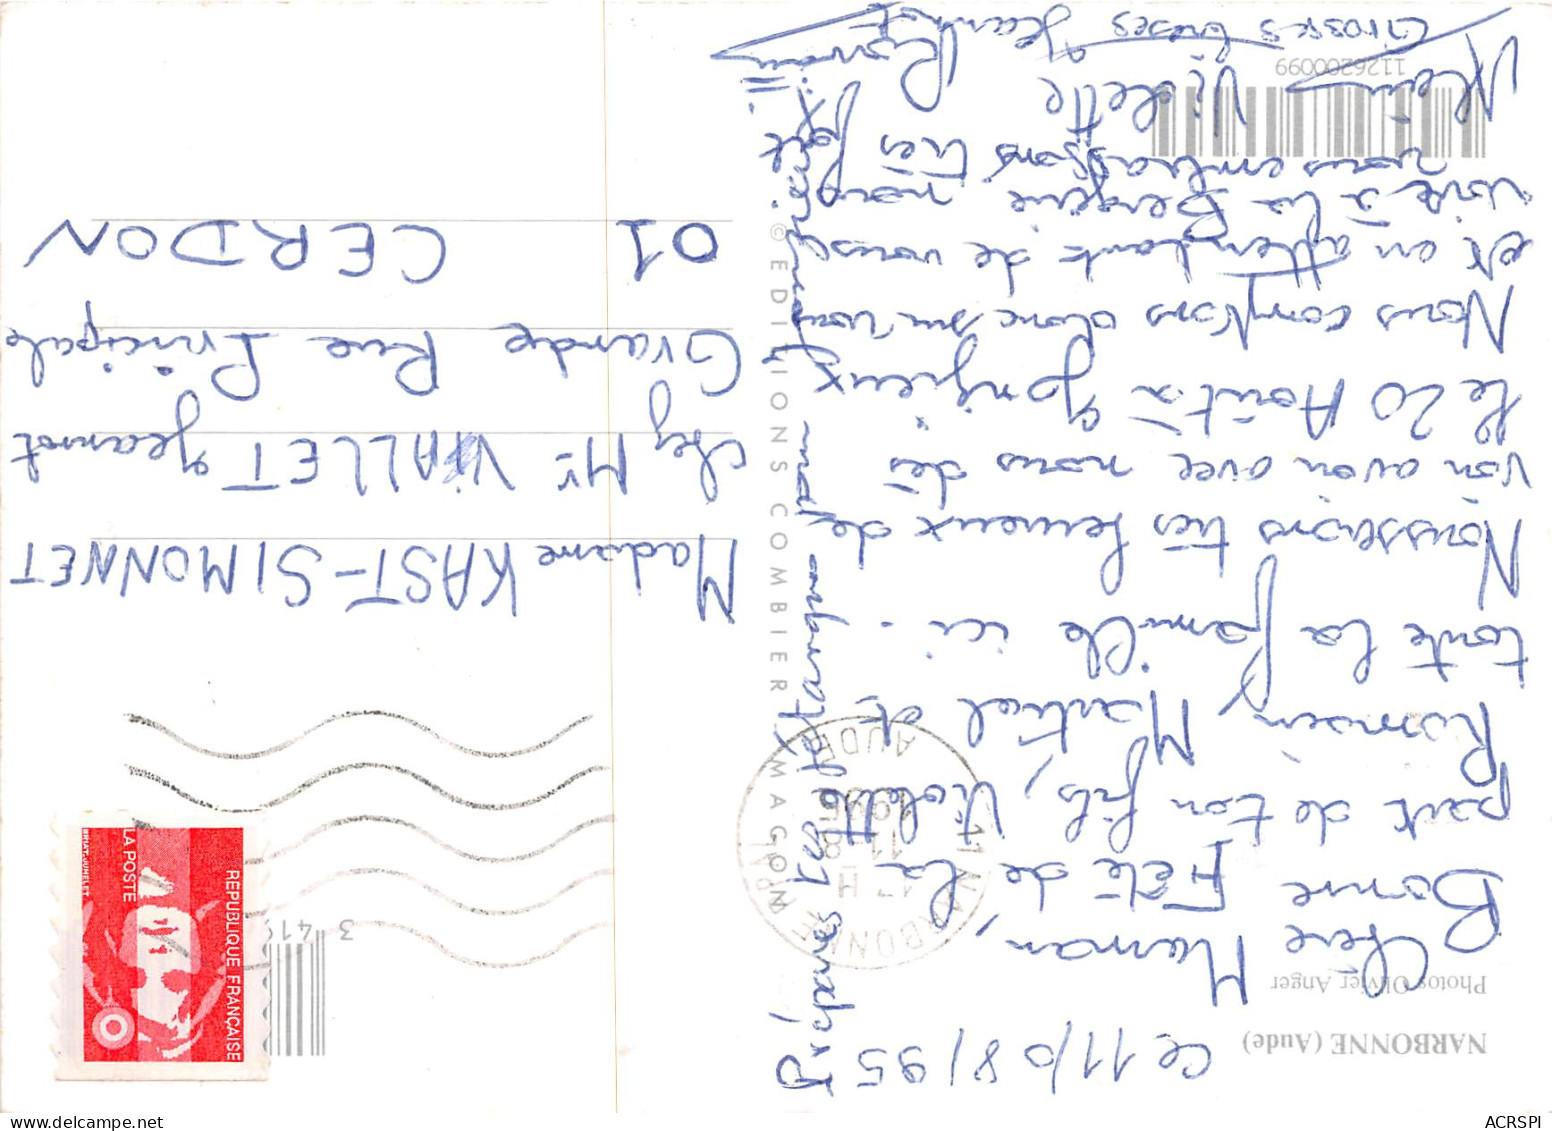 NARBONNE (Aude)
Photos Olivier Anger
Ce 11/08/95
Chère Maman,
Bonne Fête de la
part de ton fils, Violette
Romain, Martial et
toute la famille ici.
Nous serions très heureux de
von avoir avec nous dès
le 20 Août à Jonzieux
Nous comptons donc sur vous
et en attendant de vous
voir à la Bergerie nous
vous embrassons très fort
Alain Violette Romain
Grosses bises Jeannot
1126200099
© EDITIONS COMBIER
IMP. MACON
11 NARBONNE
17 H
11 8
1995
AUDE
Madame KAST-SIMONNET
chez Mr VIALLET Jeannot
Grande Rue Principale
01 CERDON
RÉPUBLIQUE FRANÇAISE
LA POSTE
BRIAT-JUMELET
3 419
ACRSPI